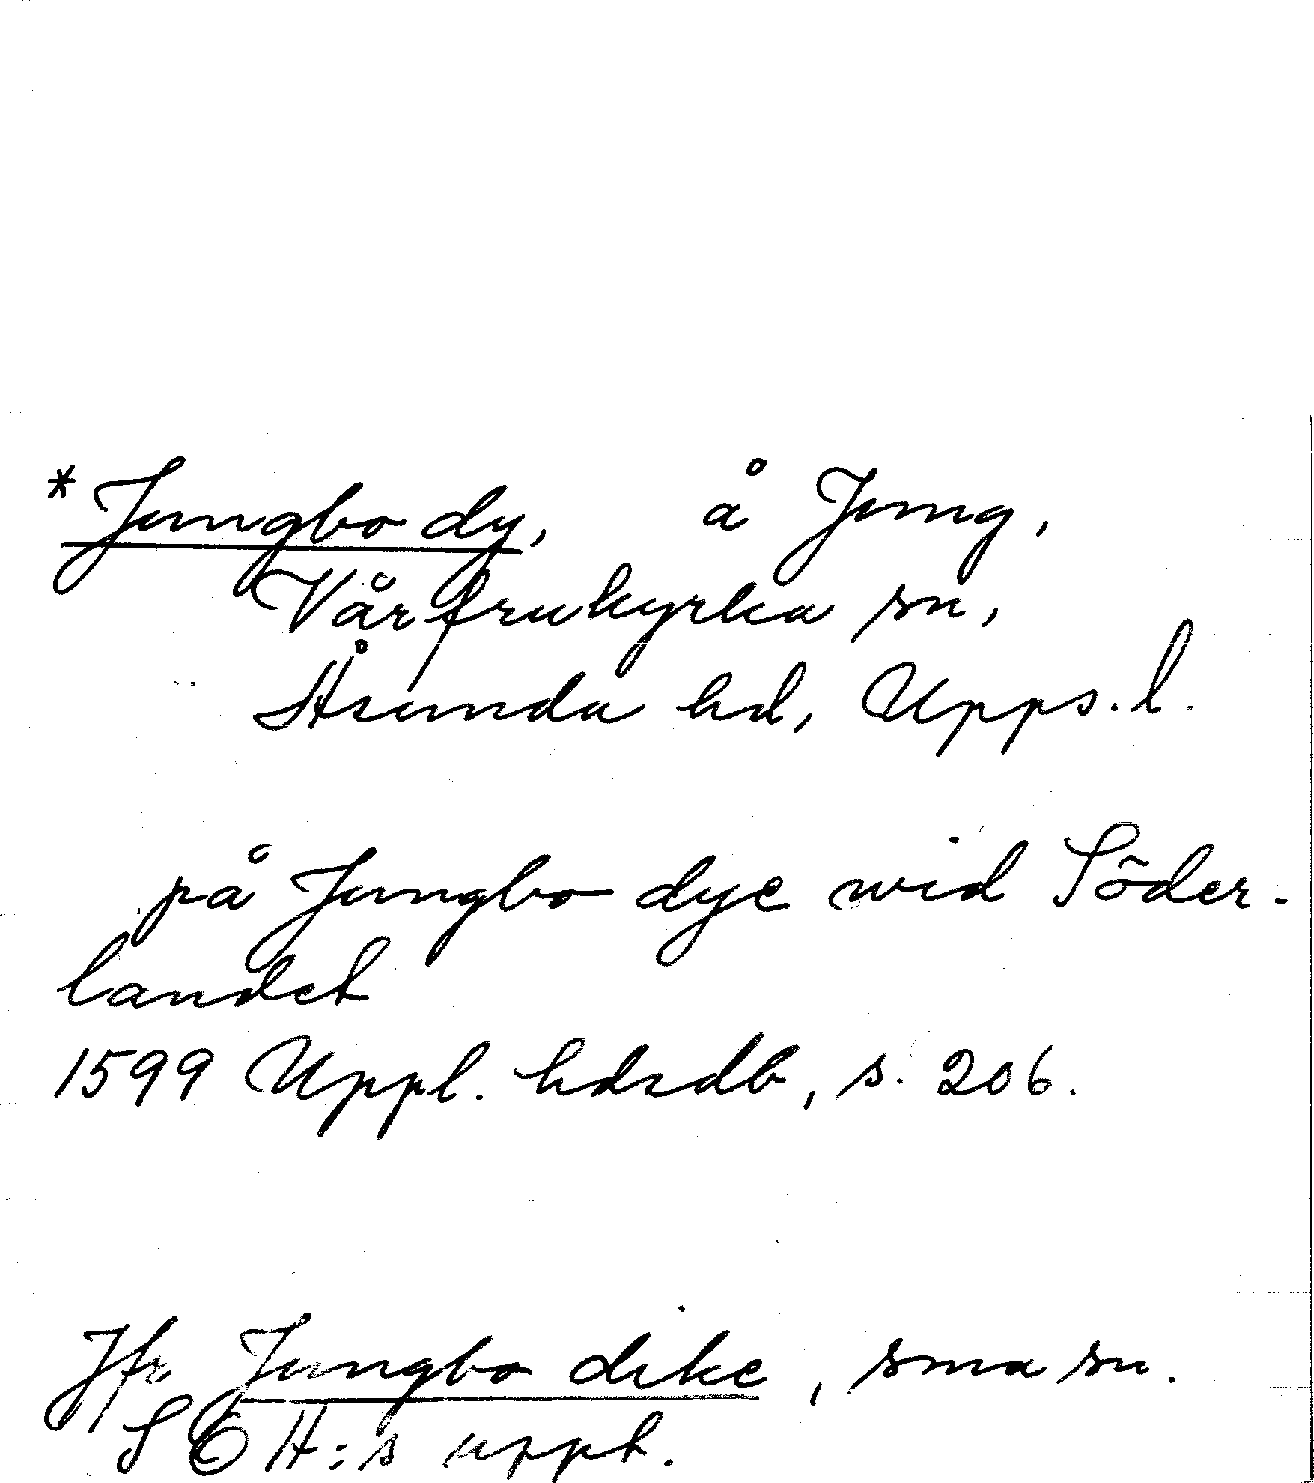 *Jungbo dy, å Jung,
Vårfrukyrka sn,
Åsunda hd, Upps. l.
på Jungbo dye wid Söder-
landet
1599 Uppl. hdsdb, s. 206.
Jfr Jungbo dike, sma sn.
SOH:s uppt.